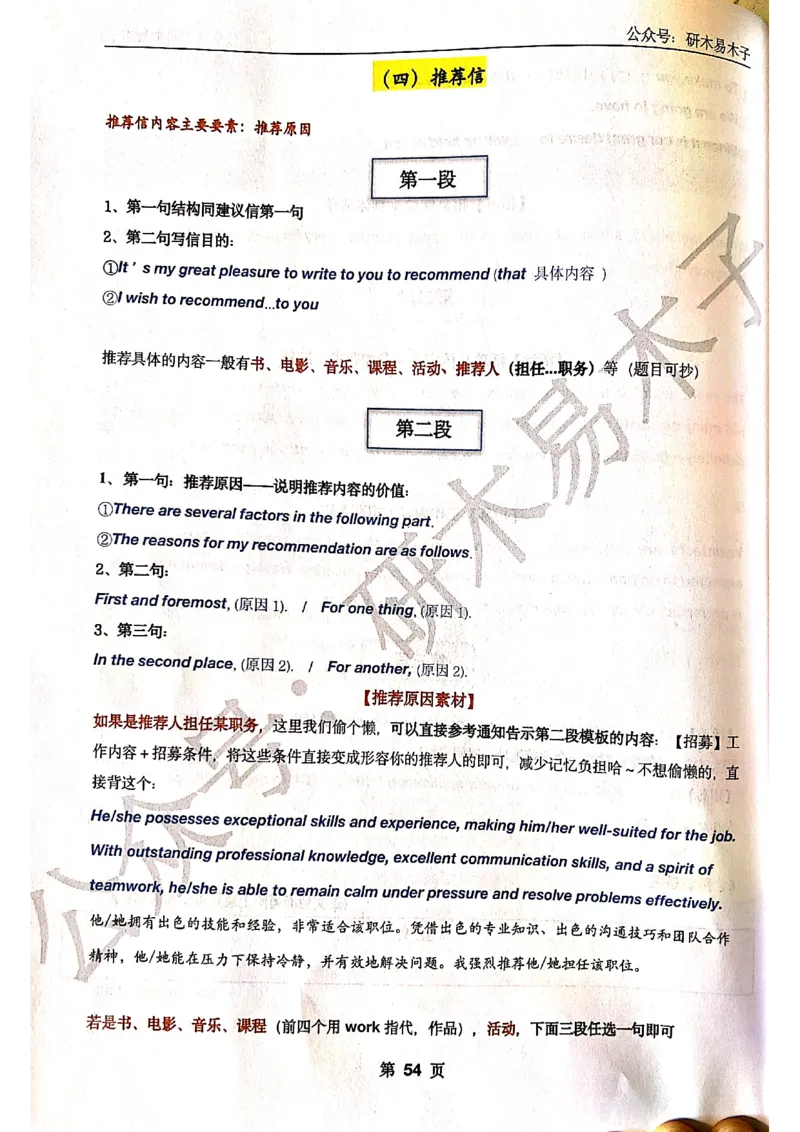 公众号：研木易木子
（四）推荐信
推荐信内容主要要素：推荐原因
第一段
1、第一句结构同建议信第一句
2、第二句写信目的：
①It's my great pleasure to write to you to recommend (that 具体内容 )
②I wish to recommend...to you
推荐具体的内容一般有书、电影、音乐、课程、活动、推荐人（担任...职务）等（题目可抄）
第二段
1、第一句：推荐原因——说明推荐内容的价值：
①There are several factors in the following part.
②The reasons for my recommendation are as follows.
2、第二句：
First and foremost, (原因 1). / For one thing, (原因 1).
3、第三句：
In the second place, (原因 2). / For another, (原因 2).
【推荐原因素材】
如果是推荐人担任某职务，这里我们偷个懒，可以直接参考通知告示第二段模板的内容：【招募】工
作内容+招募条件，将这些条件直接变成形容你的推荐人的即可，减少记忆负担哈~不想偷懒的，直
接背这个：
He/she possesses exceptional skills and experience, making him/her well-suited for the job.
With outstanding professional knowledge, excellent communication skills, and a spirit of
teamwork, he/she is able to remain calm under pressure and resolve problems effectively.
他/她拥有出色的技能和经验，非常适合该职位。凭借出色的专业知识、出色的沟通技巧和团队合作
精神，他/她能在压力下保持冷静，并有效地解决问题。我强烈推荐他/她担任该职位。
若是书、电影、音乐、课程（前四个用 work 指代，作品），活动，下面三段任选一句即可
第 54 页
公众号：研木易木子